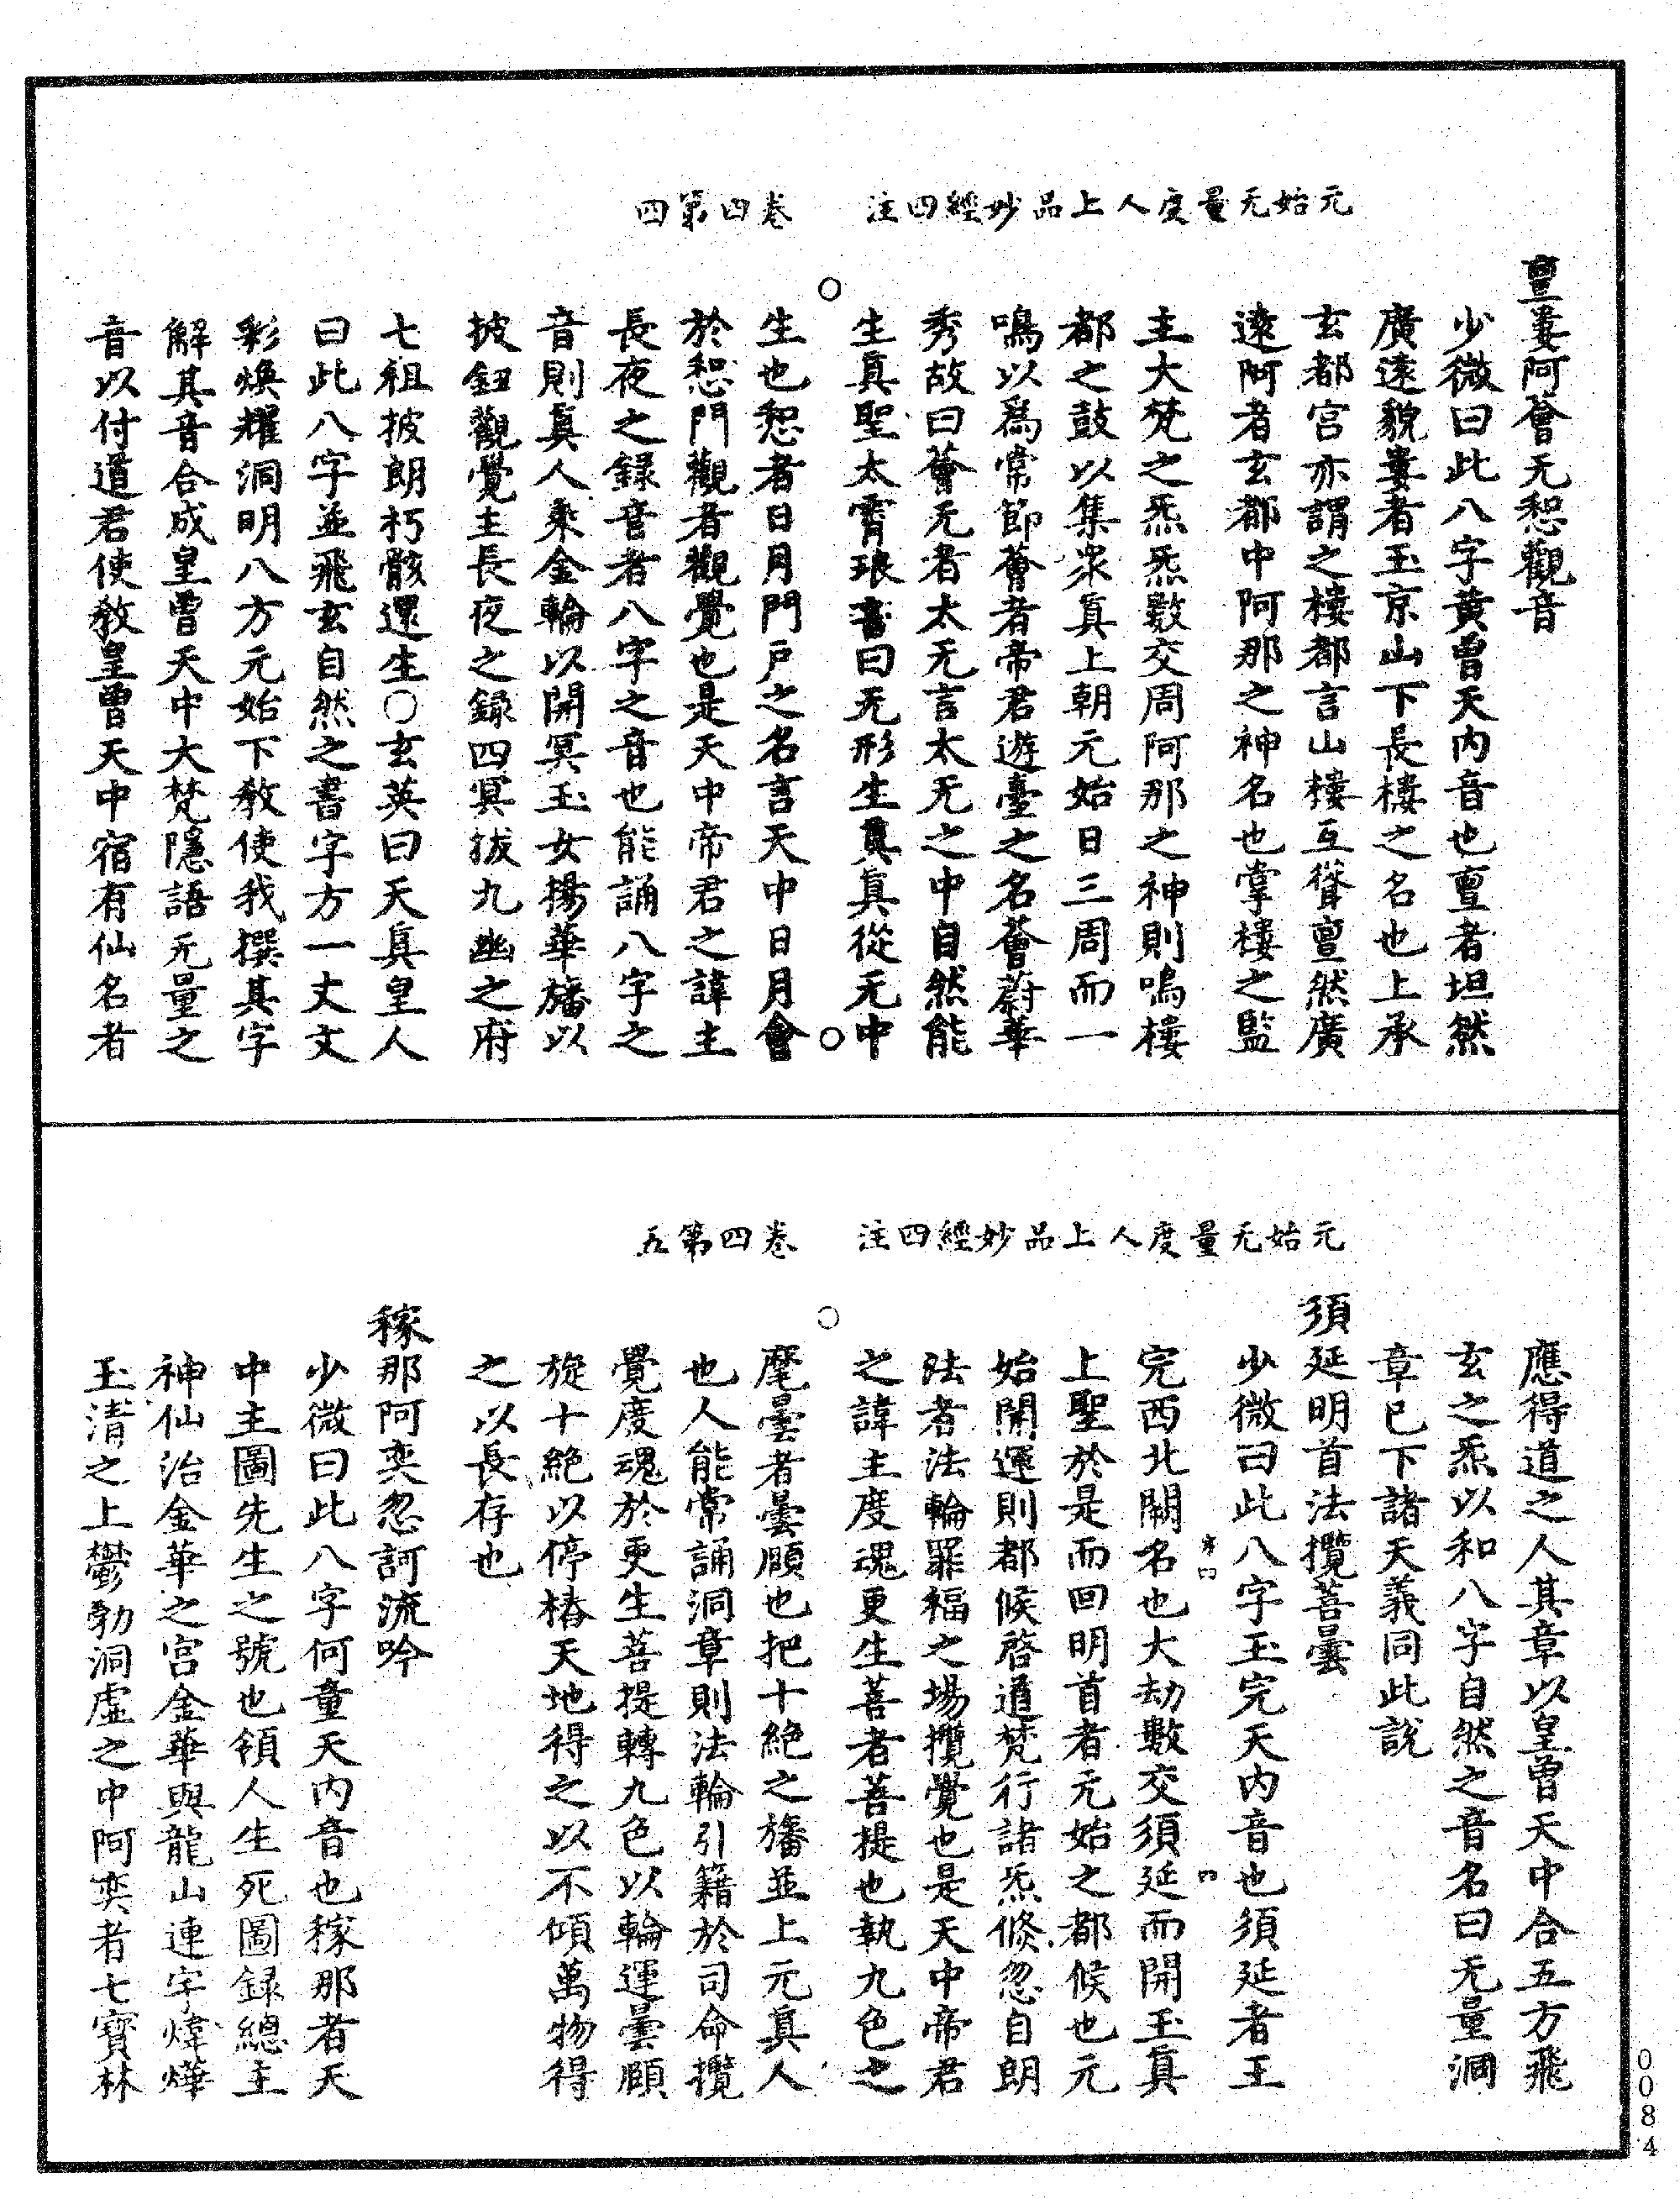 元始无量度人上品妙經四注　卷四第四
亶婁阿薈无惒觀音
少微曰此八字黃曾天內音也亶者坦然
廣遠貌婁者玉京山下長樓之名也上承
玄都宮亦謂之樓都言山樓互聳亶然廣
遠阿者玄都中阿那之神名也掌樓之監
主大梵之炁炁數交周阿那之神則鳴樓
都之鼓以集衆真上朝元始日三周而一
鳴以爲常節薈者帝君遊臺之名薈蔚華
秀故曰薈无者太无言太无之中自然能
生真聖太霄琅書曰无形生真真從无中
生也惒者日月門戶之名言天中日月會
於惒門觀者觀覺也是天中帝君之諱主
長夜之録音者八字之音也能誦八字之
音則真人乘金輪以開冥玉女揚華旛以
披鈕觀覺主長夜之録四冥拔九幽之府
七祖披朗朽骸還生○玄英曰天真皇人
曰此八字並飛玄自然之書字方一丈文
彩煥耀洞明八方元始下教使我撰其字
解其音合成皇曾天中大梵隱語无量之
音以付道君使教皇曾天中宿有仙名者
元始无量度人上品妙經四注　卷四第五
應得道之人其章以皇曾天中合五方飛
玄之炁以和八字自然之音名曰无量洞
章已下諸天義同此說
須延明首法攬菩曇
少微曰此八字玉完天內音也須延者王
完西北關名也大劫數交須延而開玉真
上聖於是而回明首者元始之都候也元
始開運則都候啓道梵行諸炁倏忽自朗
法者法輪罪福之場攬覺也是天中帝君
之諱主度魂更生菩者菩提也執九色之
麾曇者曇願也把十絶之旛並上元真人
也人能常誦洞章則法輪引籍於司命攬
覺度魂於更生菩提轉九色以輪運曇願
旋十絶以停椿天地得之以不傾萬物得
之以長存也
稼那阿奕忽訶流吟
少微曰此八字何童天內音也稼那者天
中主圖先生之號也領人生死圖録總主
神仙治金華之宮金華與龍山連字煒燁
玉清之上鬱勃洞虛之中阿奕者七寶林
0084